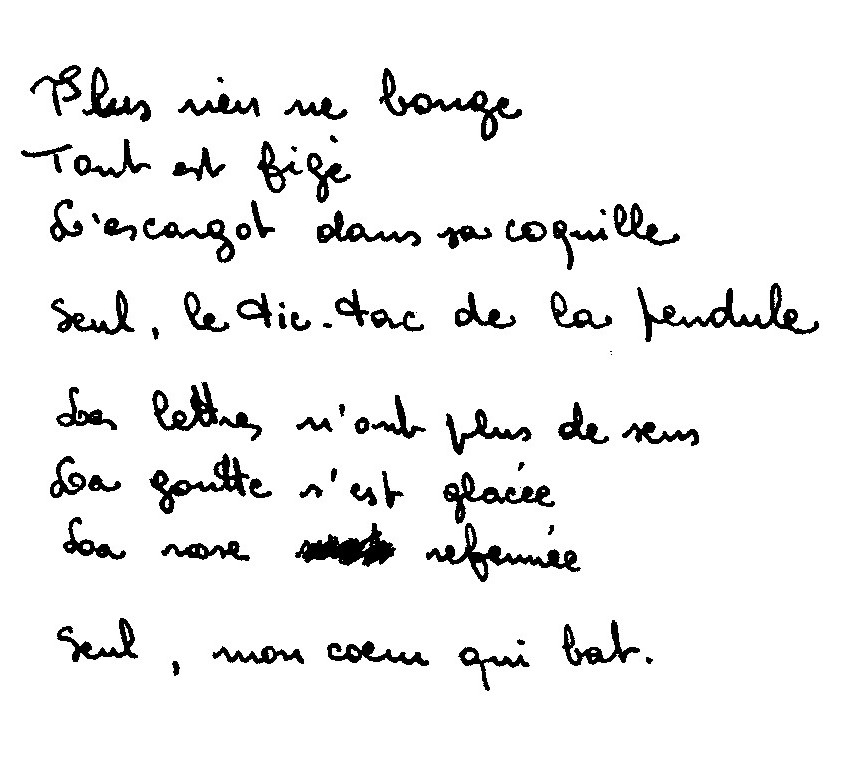 Plus rien ne bouge
Tout est figé
L'escargot dans sa coquille
Seul, le tic-tac de la pendule
Les lettres n'ont plus de sens
La goutte s'est glacée
La rose refermée
Seul, mon coeur qui bat.